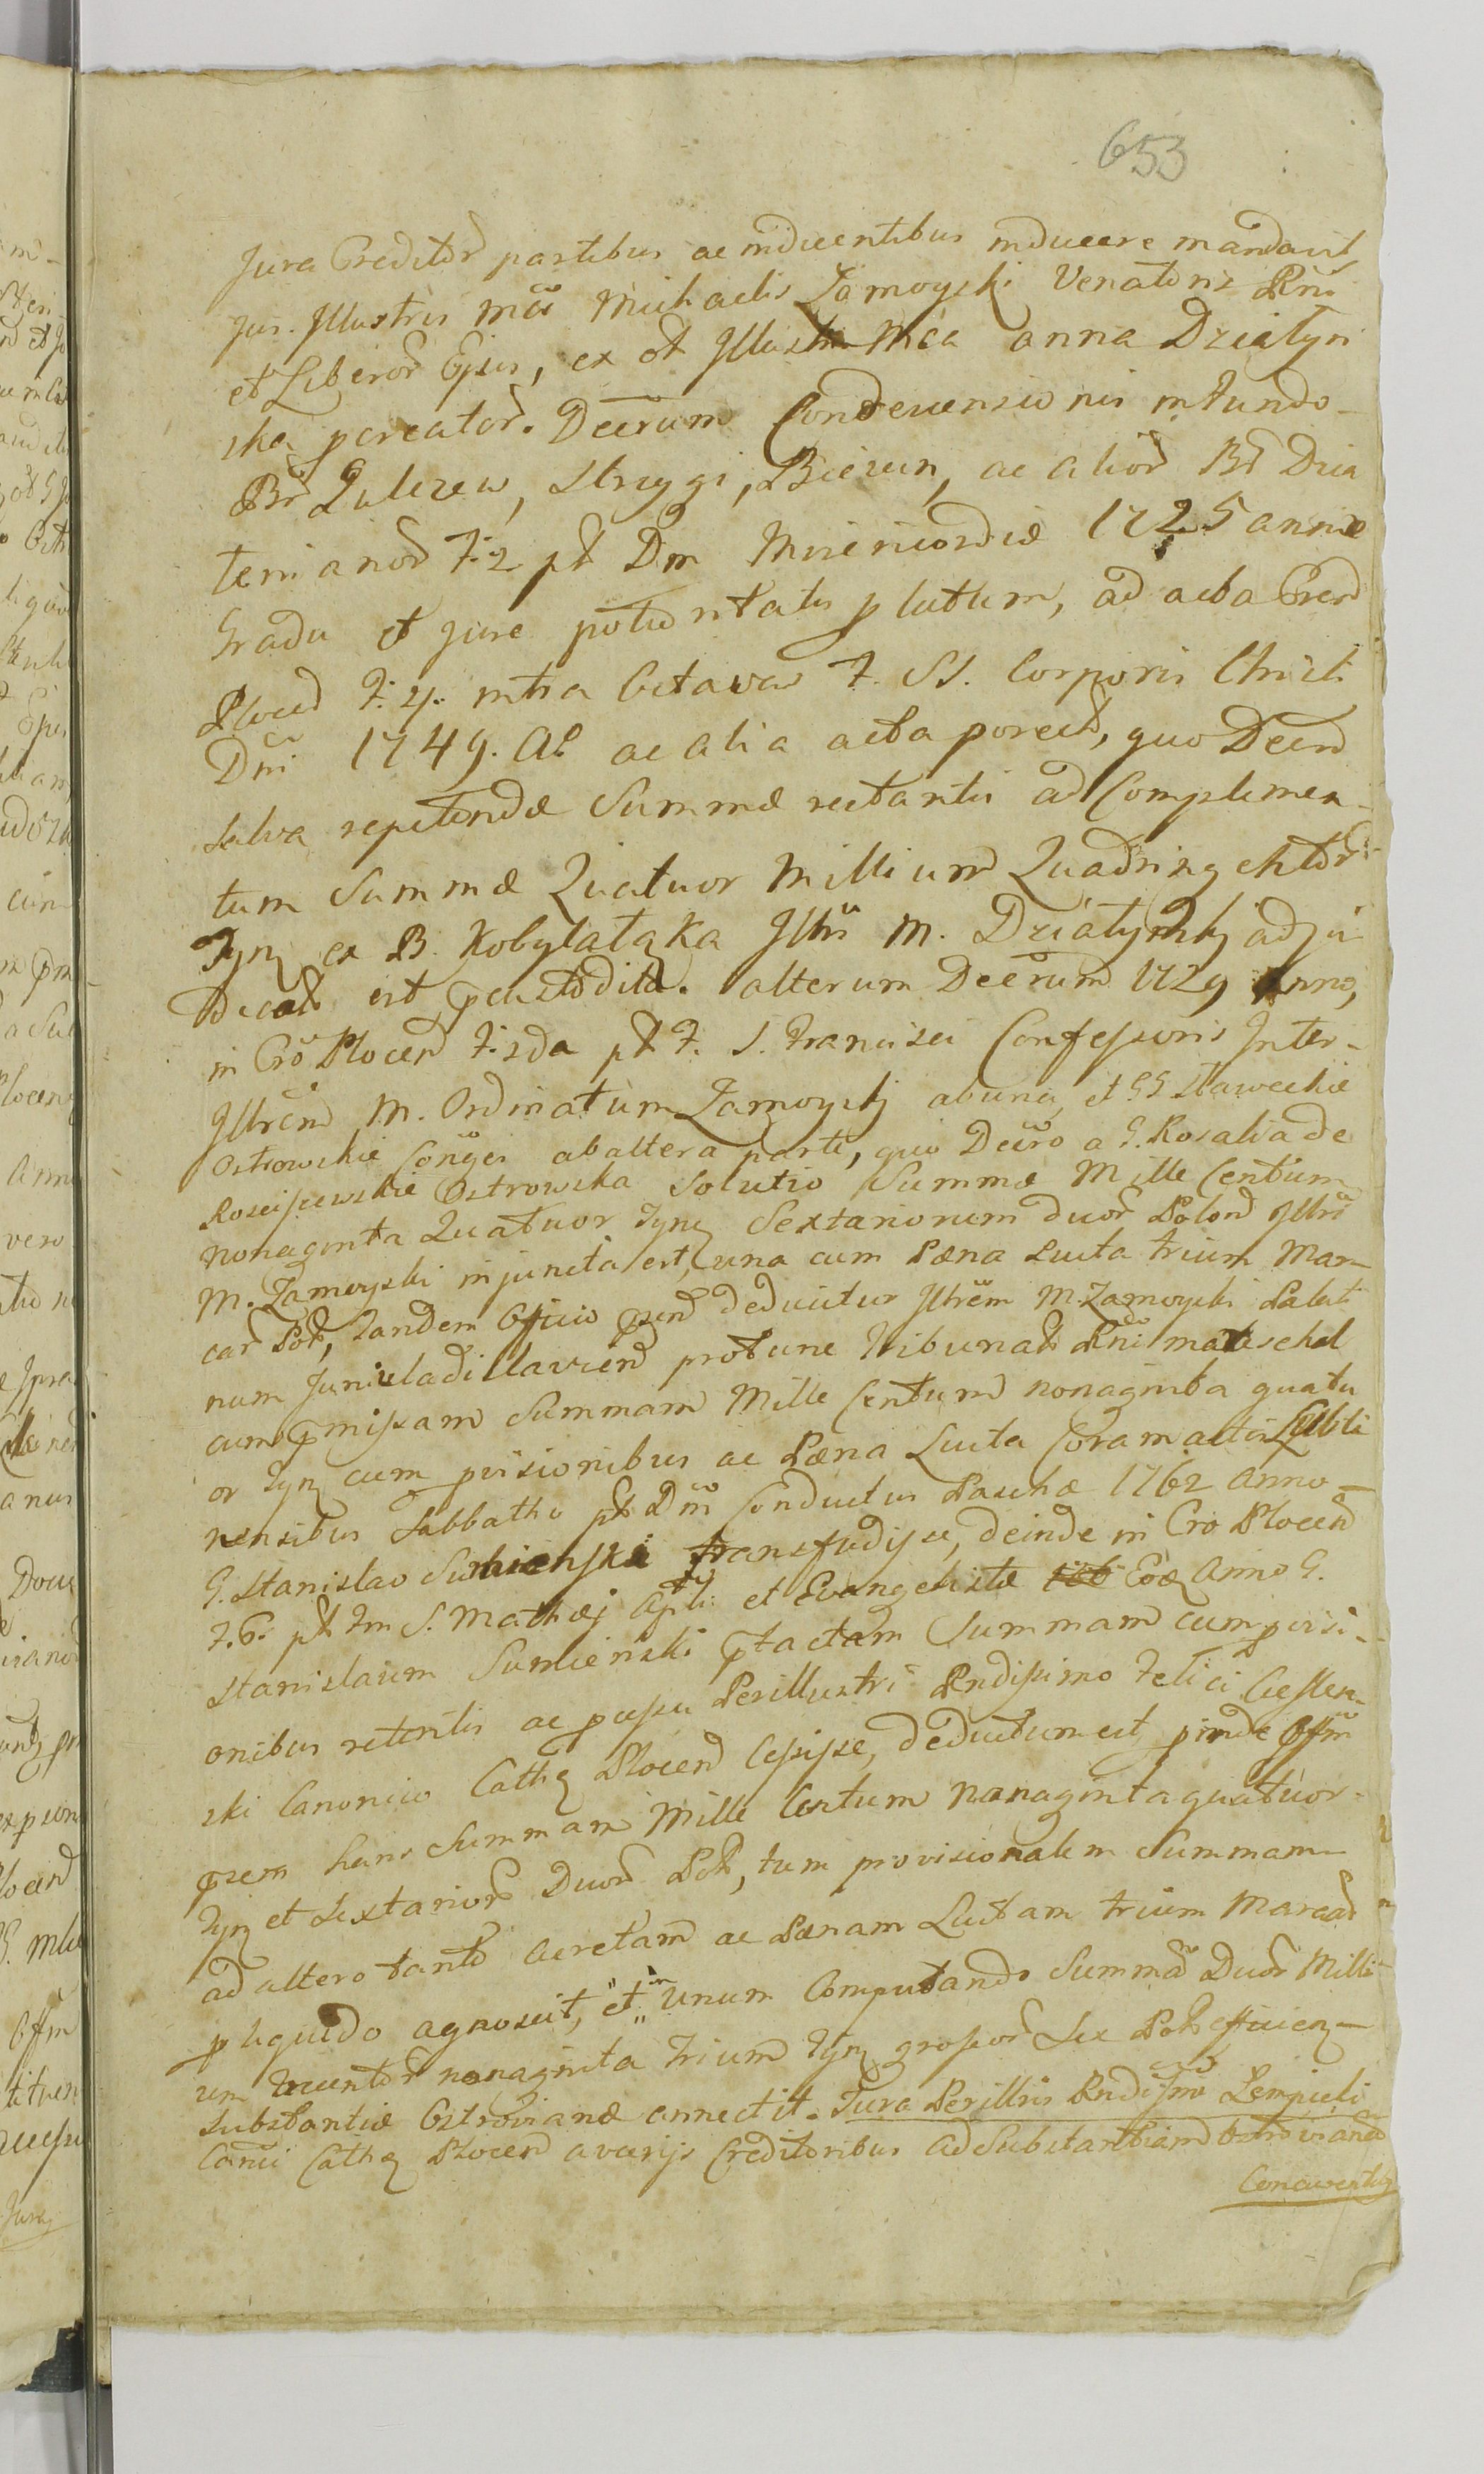 653
Jura Creditor partibus ac inducentibus inducere mandavit
Jus. Illustris Mci Michaelis Zamoyski Venatoris Rni
et Liberor Ejus, ex olt Illustri Mca Anna Dziatyn
ska pcreator. Decrum Condescensionis in fundo
Br Zulczew, Strzygi, Bieżun, ac alior Br Dzia
F: 2 pt Dm Misericordiæ 1725 annæ
Gradu et jure potioritatis platum, ad acta Crend
Plocen F: 4. intra Octavas F. SS. Corporis Christi
Dni 1749. Al ac alia acta porect, quo Decro
Salva repetendæ Summæ restantis ad Complemen-
tum Summæ Quatuor Millium Quadringentor
Tyn ex B. Kobylatąka Illris M. Dziatynskj adju
dicat est pcustodita. alterum Decrum 1729 Anno,
in Cro Plocen F: 2da pt F. S. Francisci Confessoris Inter-
Illrem M. Ordinatum Zamoyskj ab una, et GG Staweckie
Ostrowskie Conges ab altera parte, quo Decro a G. Rosalia de
Rosciszewskie Ostrowska Solutio Summæ Mille Centum
Nonaginta Quatuor Tyn Sextariorum duor Polon Illri
M. Zamoyski injuncta est, una cum Pæna Luita trium Mar-
car Pol, tandem Officio prnd deducitur Illrem M. Zamoyski Palati
num Juniuladislavien protunc Tribunal Rni mareschal
cum pmissam Summam Mille Centum nonaginta quatu
or Tyn cum pvisionibus ac Pæna Luita Coram actis Lubli
nensibus Sabbatho pt Dm Conductus Paschæ 1762 Anno
G. Stanislao Sumienski transfudisse, deinde in Cro Plocen
F. 6. pt Fm S. Mathæj Apli et Evangelistæ Eoq Anno G.
Stanislaum Sumienski ptactam Summam cum pvisi-
onibus retentis ac pcessu Perillustri Rndissimo Felici
ski Canonico Cathq Plocen Cessisse, deductum est pinde Offm
prem hanc Summam Mille Centum Nonaginta quatuor
Tyn et Sextarior Duor Pol, tum provisionalem Summam
ad altero tanto acretam ac Pænam Luitam trium Marcar
p liquido agnoscit, et in unum Computando Summa Duor Milli
um nonaginta trium Tyn grossor Sex Pol efficien-
Substantiæ Ostrovianæ annectit. Jura Perillris Rndismi Lempicki
Canci Cathq Plocen a varijs Creditoribus ad Substantiam Ostrovianam
Concernentia